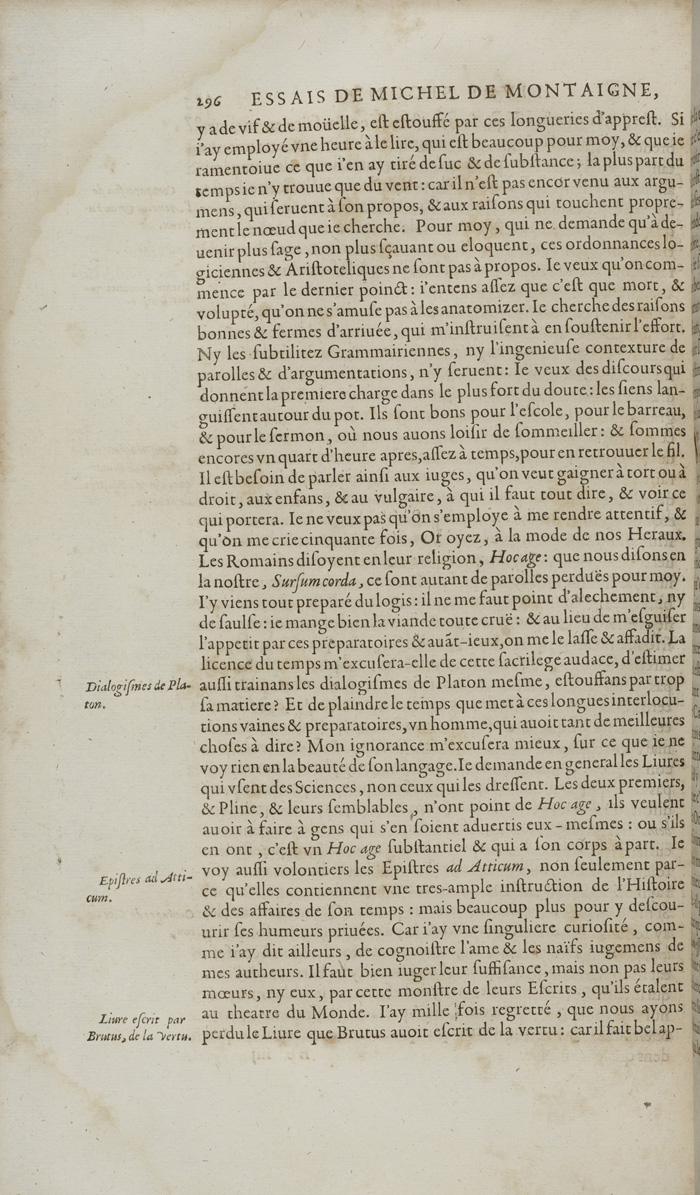 296 ESSAIS DE MICHEL DE MONTAIGNE,
y a de vif & de moüelle, eſt eſtouffé par ces longueries d'appreſt. Si
i'ay employé vne heure à le lire, qui eſt beaucoup pour moy, & que ie
ramentoiue ce que i'en ay tiré de ſuc & de ſubſtance; la plus part du
temps ie n'y trouue que du vent: car il n'eſt pas encor venu aux argu-
mens, qui ſeruent à ſon propos, & aux raiſons qui touchent propre-
ment le nœud que ie cherche. Pour moy, qui ne demande qu'à de-
uenir plus ſage, non plus ſçauant ou eloquent, ces ordonnances lo-
giciennes & Ariſtoteliques ne ſont pas à propos. Ie veux qu'on com-
mence par le dernier poinct: i'entens aſſez que c'eſt que mort, &
volupté, qu'on ne s'amuſe pas à les anatomizer. Ie cherche des raiſons
bonnes & fermes d'arriuée, qui m'inſtruiſent à en ſouſtenir l'effort.
Ny les ſubtilitez Grammairiennes, ny l'ingenieuſe contexture de
parolles & d'argumentations, n'y ſeruent: Ie veux des diſcours qui
donnent la premiere charge dans le plus fort du doute: les ſiens lan-
guiſſent autour du pot. Ils ſont bons pour l'eſcole, pour le barreau,
& pour le ſermon, où nous auons loiſir de ſommeiller: & ſommes
encores vn quart d'heure apres, aſſez à temps, pour en retrouuer le fil.
Il eſt beſoin de parler ainſi aux iuges, qu'on veut gaigner à tort ou à
droit, aux enfans, & au vulgaire, à qui il faut tout dire, & voir ce
qui portera. Ie ne veux pas qu'on s'employe à me rendre attentif, &
qu'on me crie cinquante fois, Or oyez, à la mode de nos Heraux.
Les Romains diſoyent en leur religion, Hoc age: que nous diſons en
la noſtre, Surſum corda, ce ſont autant de parolles perduës pour moy.
I'y viens tout preparé du logis: il ne me faut point d'alechement, ny
de ſaulſe: ie mange bien la viande toute cruë: & au lieu de m'eſguiſer
l'appetit par ces preparatoires & auãt-ieux, on me le laſſe & affadit. La
licence du temps m'excuſera-elle de cette ſacrilege audace, d'eſtimer
Dialogiſmes de Pla-
ton.
auſſi trainans les dialogiſmes de Platon meſme, eſtouffans par trop
ſa matiere? Et de plaindre le temps que met à ces longues interlocu-
tions vaines & preparatoires, vn homme, qui auoit tant de meilleures
choſes à dire? Mon ignorance m'excuſera mieux, ſur ce que ie ne
voy rien en la beauté de ſon langage. Ie demande en general les Liures
qui vſent des Sciences, non ceux qui les dreſſent. Les deux premiers,
& Pline, & leurs ſemblables, n'ont point de Hoc age, ils veulent
auoir à faire à gens qui s'en ſoient aduertis eux-meſmes: ou s'ils
en ont, c'eſt vn Hoc age ſubſtantiel & qui a ſon corps à part. Ie
Epiſtres ad Atti-
cum.
voy auſſi volontiers les Epiſtres ad Atticum, non ſeulement par-
ce qu'elles contiennent vne tres-ample inſtruction de l'Hiſtoire
& des affaires de ſon temps: mais beaucoup plus pour y deſcou-
urir ſes humeurs priuées. Car i'ay vne ſinguliere curioſité, com-
me i'ay dit ailleurs, de cognoiſtre l'ame & les naïfs iugemens de
mes autheurs. Il faut bien iuger leur ſuffiſance, mais non pas leurs
mœurs, ny eux, par cette monſtre de leurs Eſcrits, qu'ils étalent
Liure eſcrit par
Brutus, de la vertu.
au theatre du Monde. I'ay mille fois regretté, que nous ayons
perdu le Liure que Brutus auoit eſcrit de la vertu: car il fait bel ap-